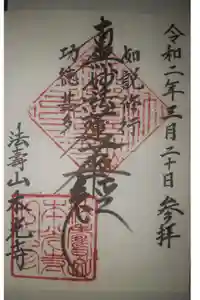 令和二年三月二十日 参拝
如説修行
南無妙法蓮華経
功徳甚多
法壽山本光寺